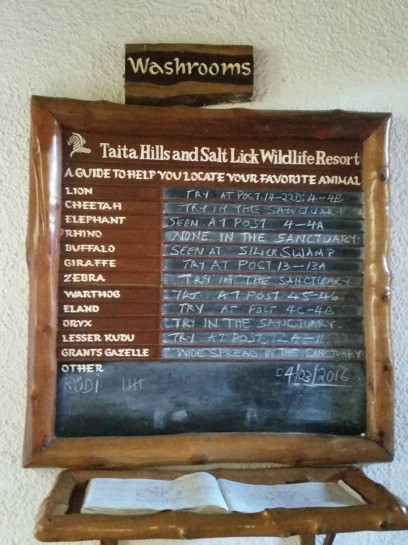 Washrooms
Taita Hills and Salt Lick Wildlife Resort
A GUIDE TO HELP YOU LOCATE YOUR FAVORITE ANIMAL
LION TRY AT POST 14-22D; 4-4B
CHEETAH TRY IN THE SANCTUARY
ELEPHANT SEEN AT POST 4-4A
RHINO NONE IN THE SANCTUARY
BUFFALO SEEN AT SWAMP
GIRAFFE TRY AT POST 13-13A
ZEBRA TRY IN THE SANCTUARY
WARTHOG AT POST 45-46
ELAND TRY AT POST 4C-4B
ORYX TRY IN THE SANCTUARY.
LESSER KUDU TRY AT POST
GRANTS GAZELLE WIDE SPREAD IN THE SANCTUARY
OTHER
04/03/2016